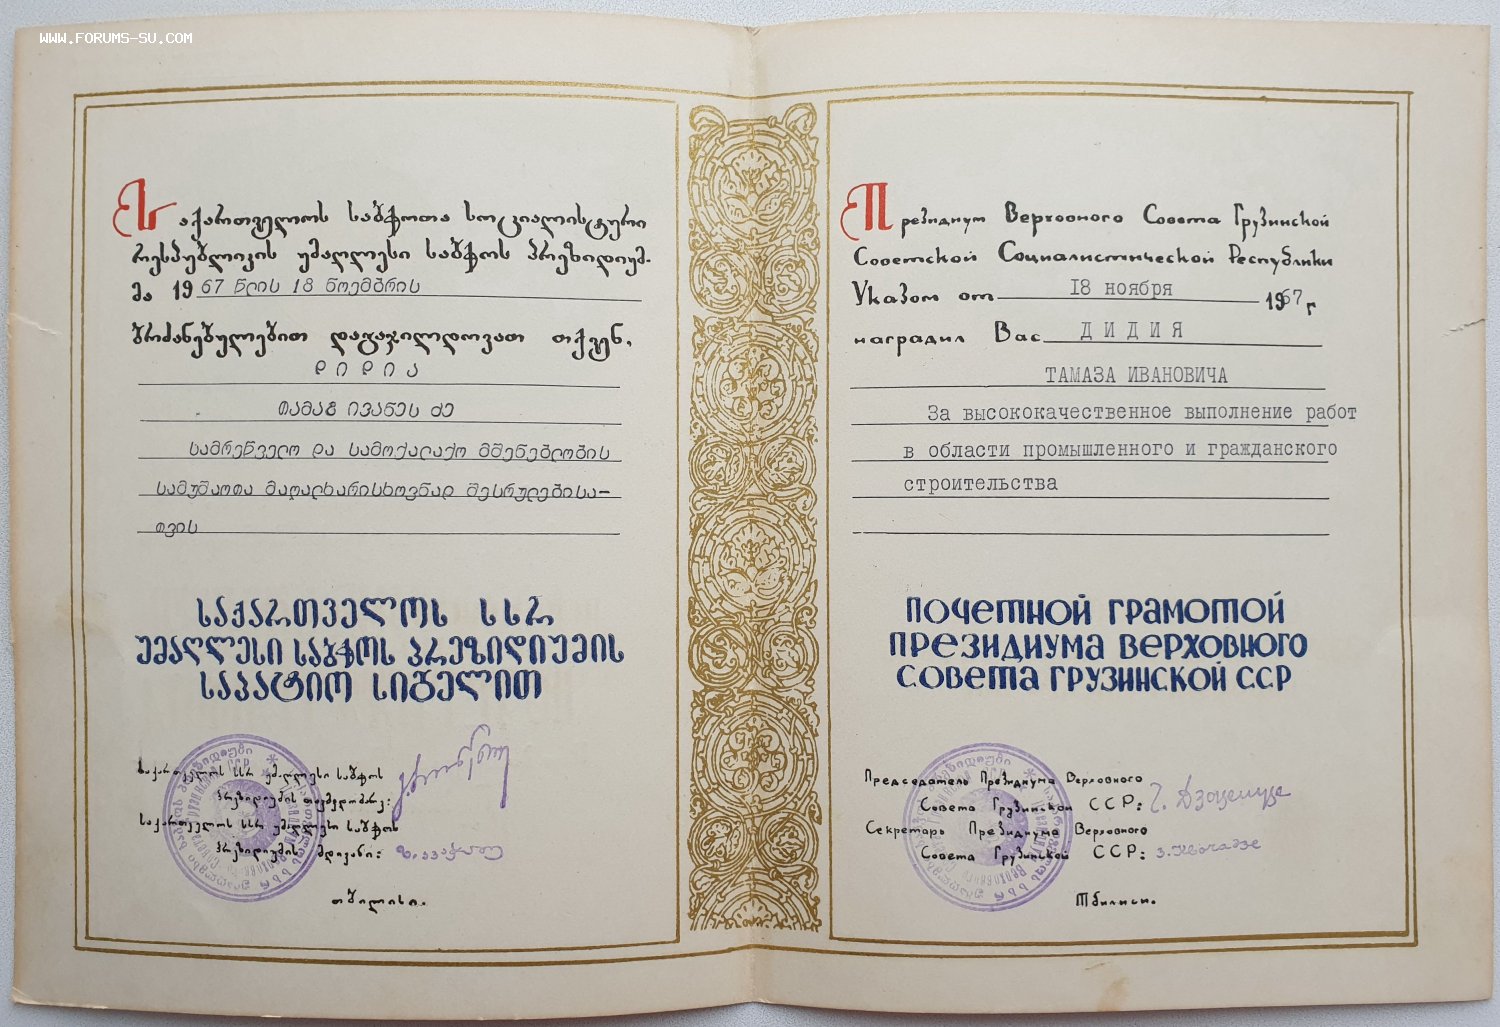 WWW.FORUMS-SU.COM
საქართველოს საბჭოთა სოციალისტური
რესპუბლიკის უმაღლესი საბჭოს პრეზიდიუმ-
მა 1967 წლის 18 ნოემბრის
ბრძანებულებით დაგაჯილდოვათ თქვენ,
დიდია
თამაზ ივანეს ძე
სამრეწველო და სამოქალაქო მშენებლობის
სამუშაოთა მაღალხარისხოვნად შესრულებისა-
თვის
საქართველოს სსრ
უმაღლესი საბჭოს პრეზიდიუმის
საპატიო სიგელით
საქართველოს სსრ უმაღლესი საბჭოს
პრეზიდიუმის თავმჯდომარე:
საქართველოს სსრ უმაღლესი საბჭოს
პრეზიდიუმის მდივანი:
თბილისი.
Президиум Верховного Совета Грузинской
Советской Социалистической Республики
Указом от 18 ноября 1967 г
наградил Вас ДИДИЯ
ТАМАЗА ИВАНОВИЧА
За высококачественное выполнение работ
в области промышленного и гражданского
строительства
ПОЧЕТНОЙ ГРАМОТОЙ
ПРЕЗИДИУМА ВЕРХОВНОГО
СОВЕТА ГРУЗИНСКОЙ ССР
Председатель Президиума Верховного
Совета Грузинской ССР: Г. Дзоценидзе
Секретарь Президиума Верховного
Совета Грузинской ССР: З. Квачадзе
Тбилиси.